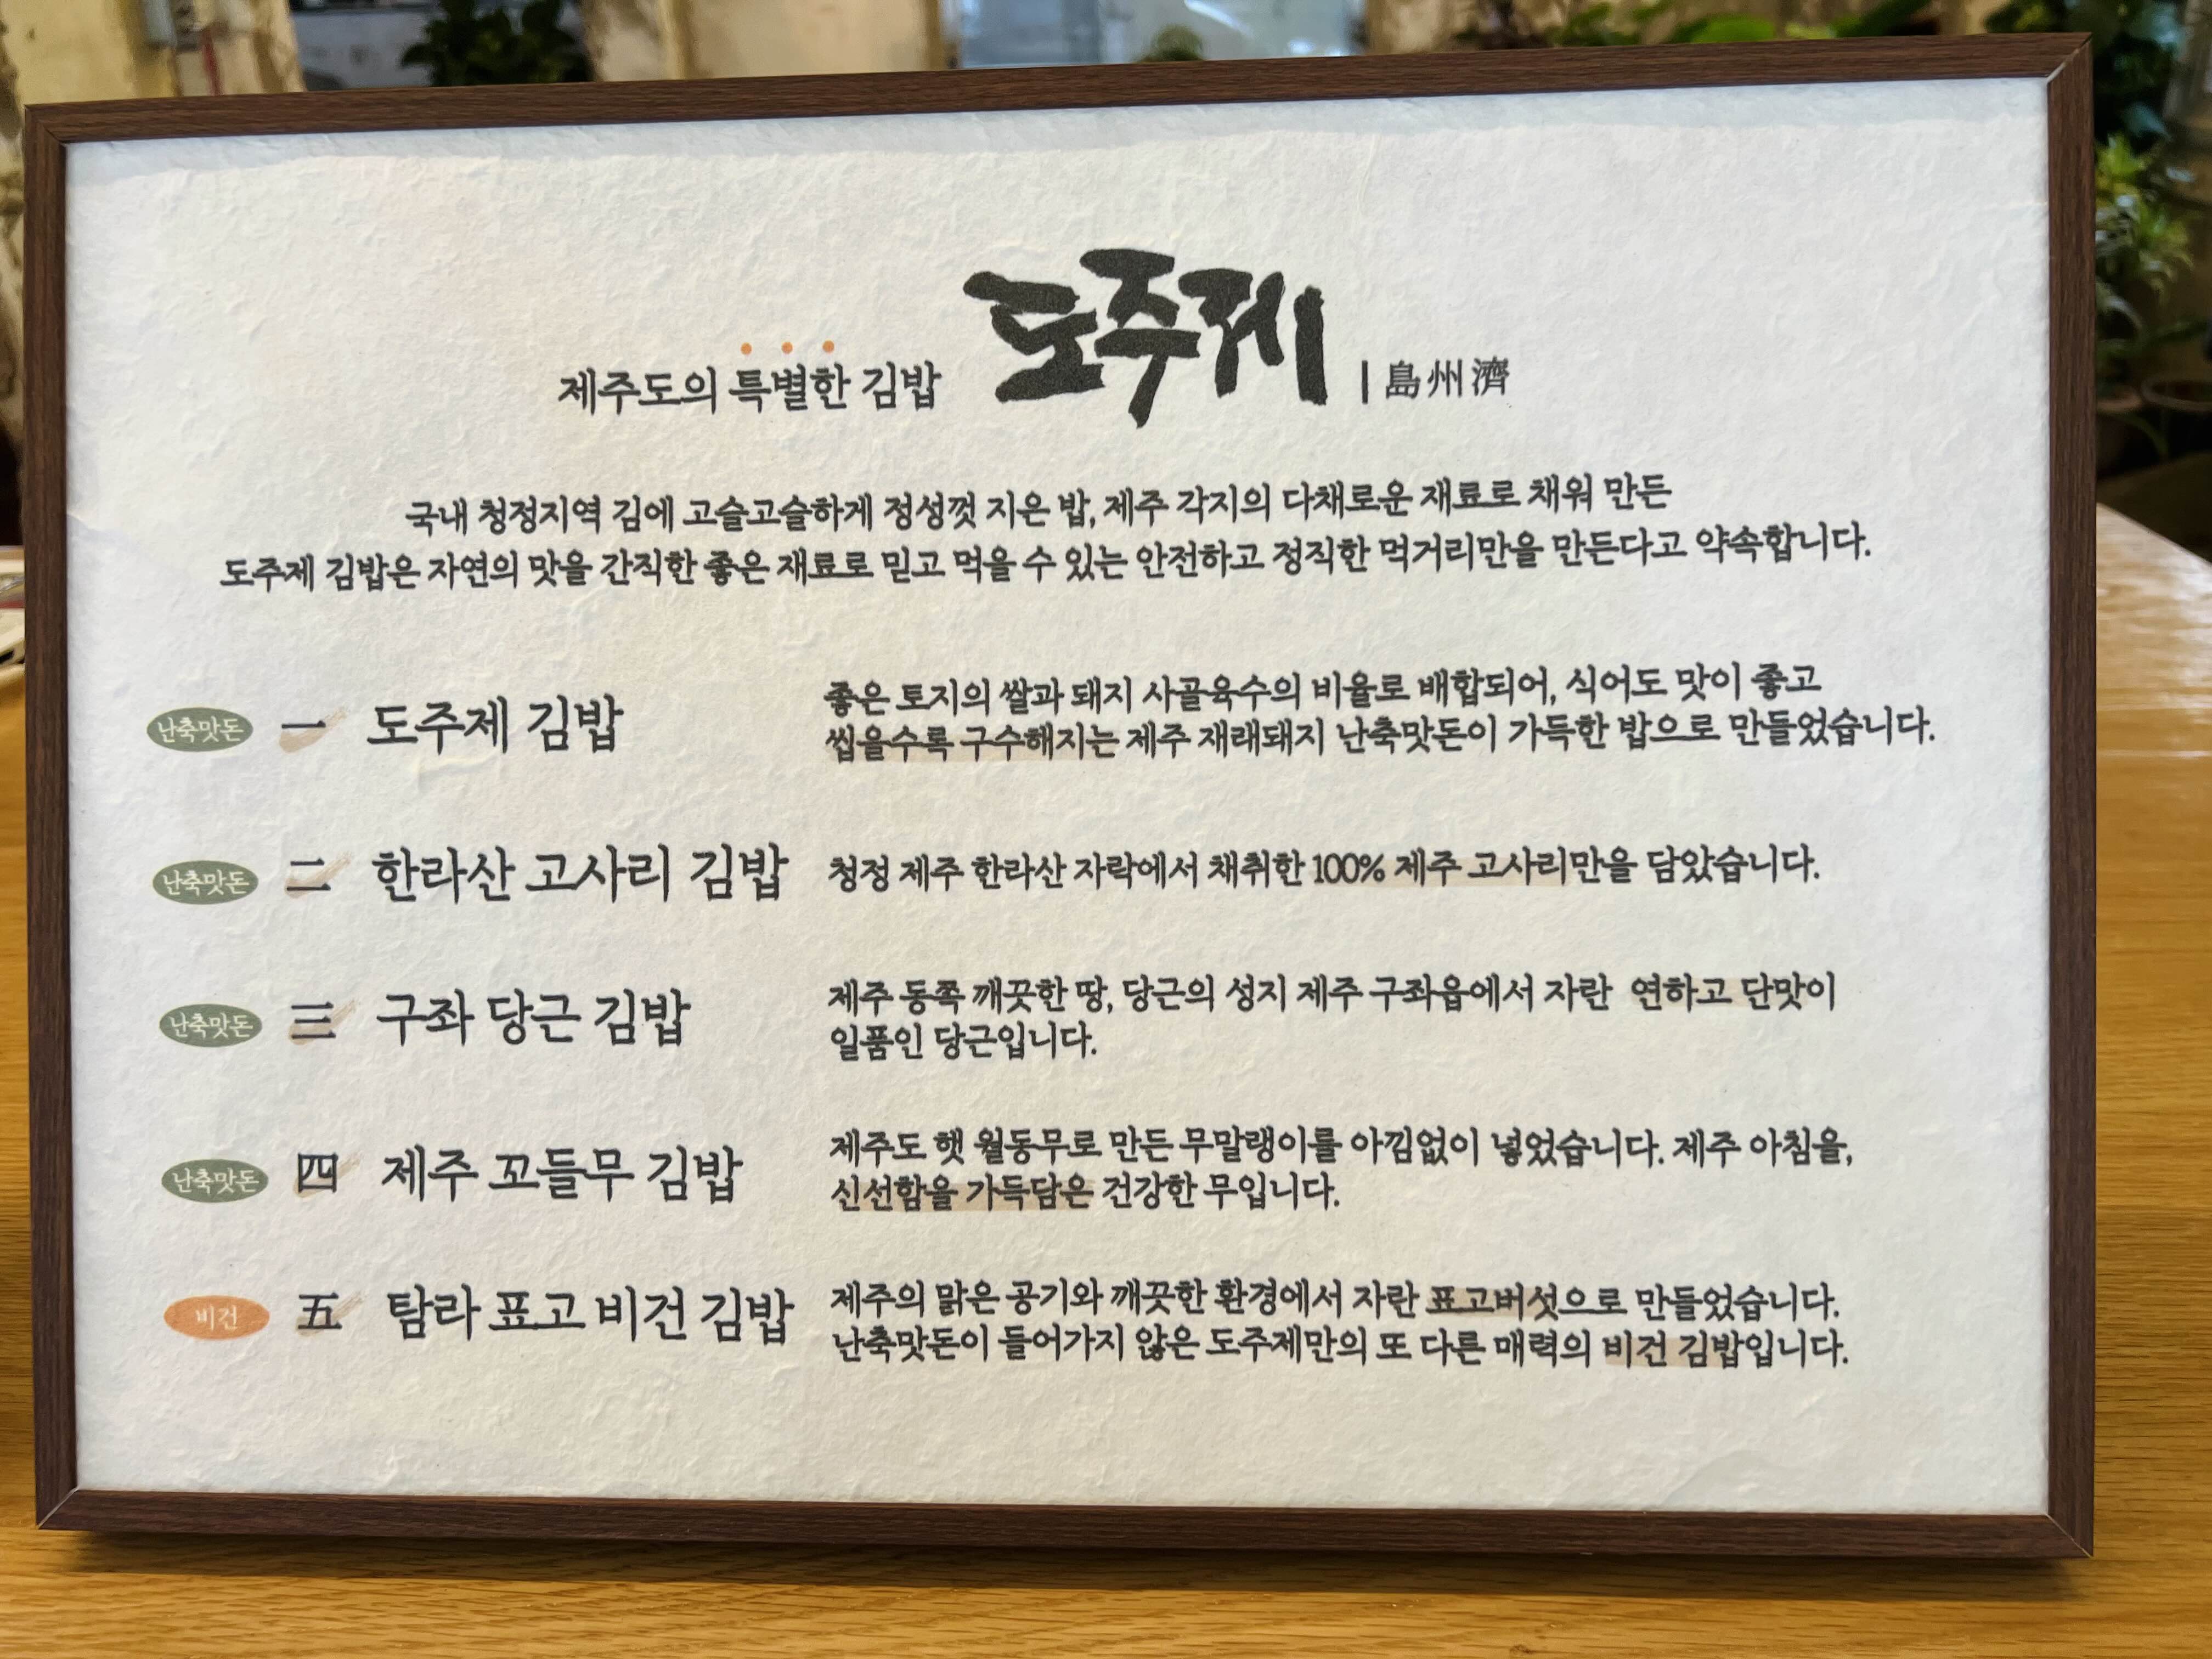 제주도의 특별한 김밥 도주제 | 島州濟
국내 청정지역 김에 고슬고슬하게 정성껏 지은 밥, 제주 각지의 다채로운 재료로 채워 만든
도주제 김밥은 자연의 맛을 간직한 좋은 재료로 믿고 먹을 수 있는 안전하고 정직한 먹거리만을 만든다고 약속합니다.
난축맛돈 一 도주제 김밥
좋은 토지의 쌀과 돼지 사골육수의 비율로 배합되어, 식어도 맛이 좋고
씹을수록 구수해지는 제주 재래돼지 난축맛돈이 가득한 밥으로 만들었습니다.
난축맛돈 二 한라산 고사리 김밥
청정 제주 한라산 자락에서 채취한 100% 제주 고사리만을 담았습니다.
난축맛돈 三 구좌 당근 김밥
제주 동쪽 깨끗한 땅, 당근의 성지 제주 구좌읍에서 자란 연하고 단맛이
일품인 당근입니다.
난축맛돈 四 제주 꼬들무 김밥
제주도 햇 월동무로 만든 무말랭이를 아낌없이 넣었습니다. 제주 아침을,
신선함을 가득담은 건강한 무입니다.
비건 五 탐라 표고 비건 김밥
제주의 맑은 공기와 깨끗한 환경에서 자란 표고버섯으로 만들었습니다.
난축맛돈이 들어가지 않은 도주제만의 또 다른 매력의 비건 김밥입니다.